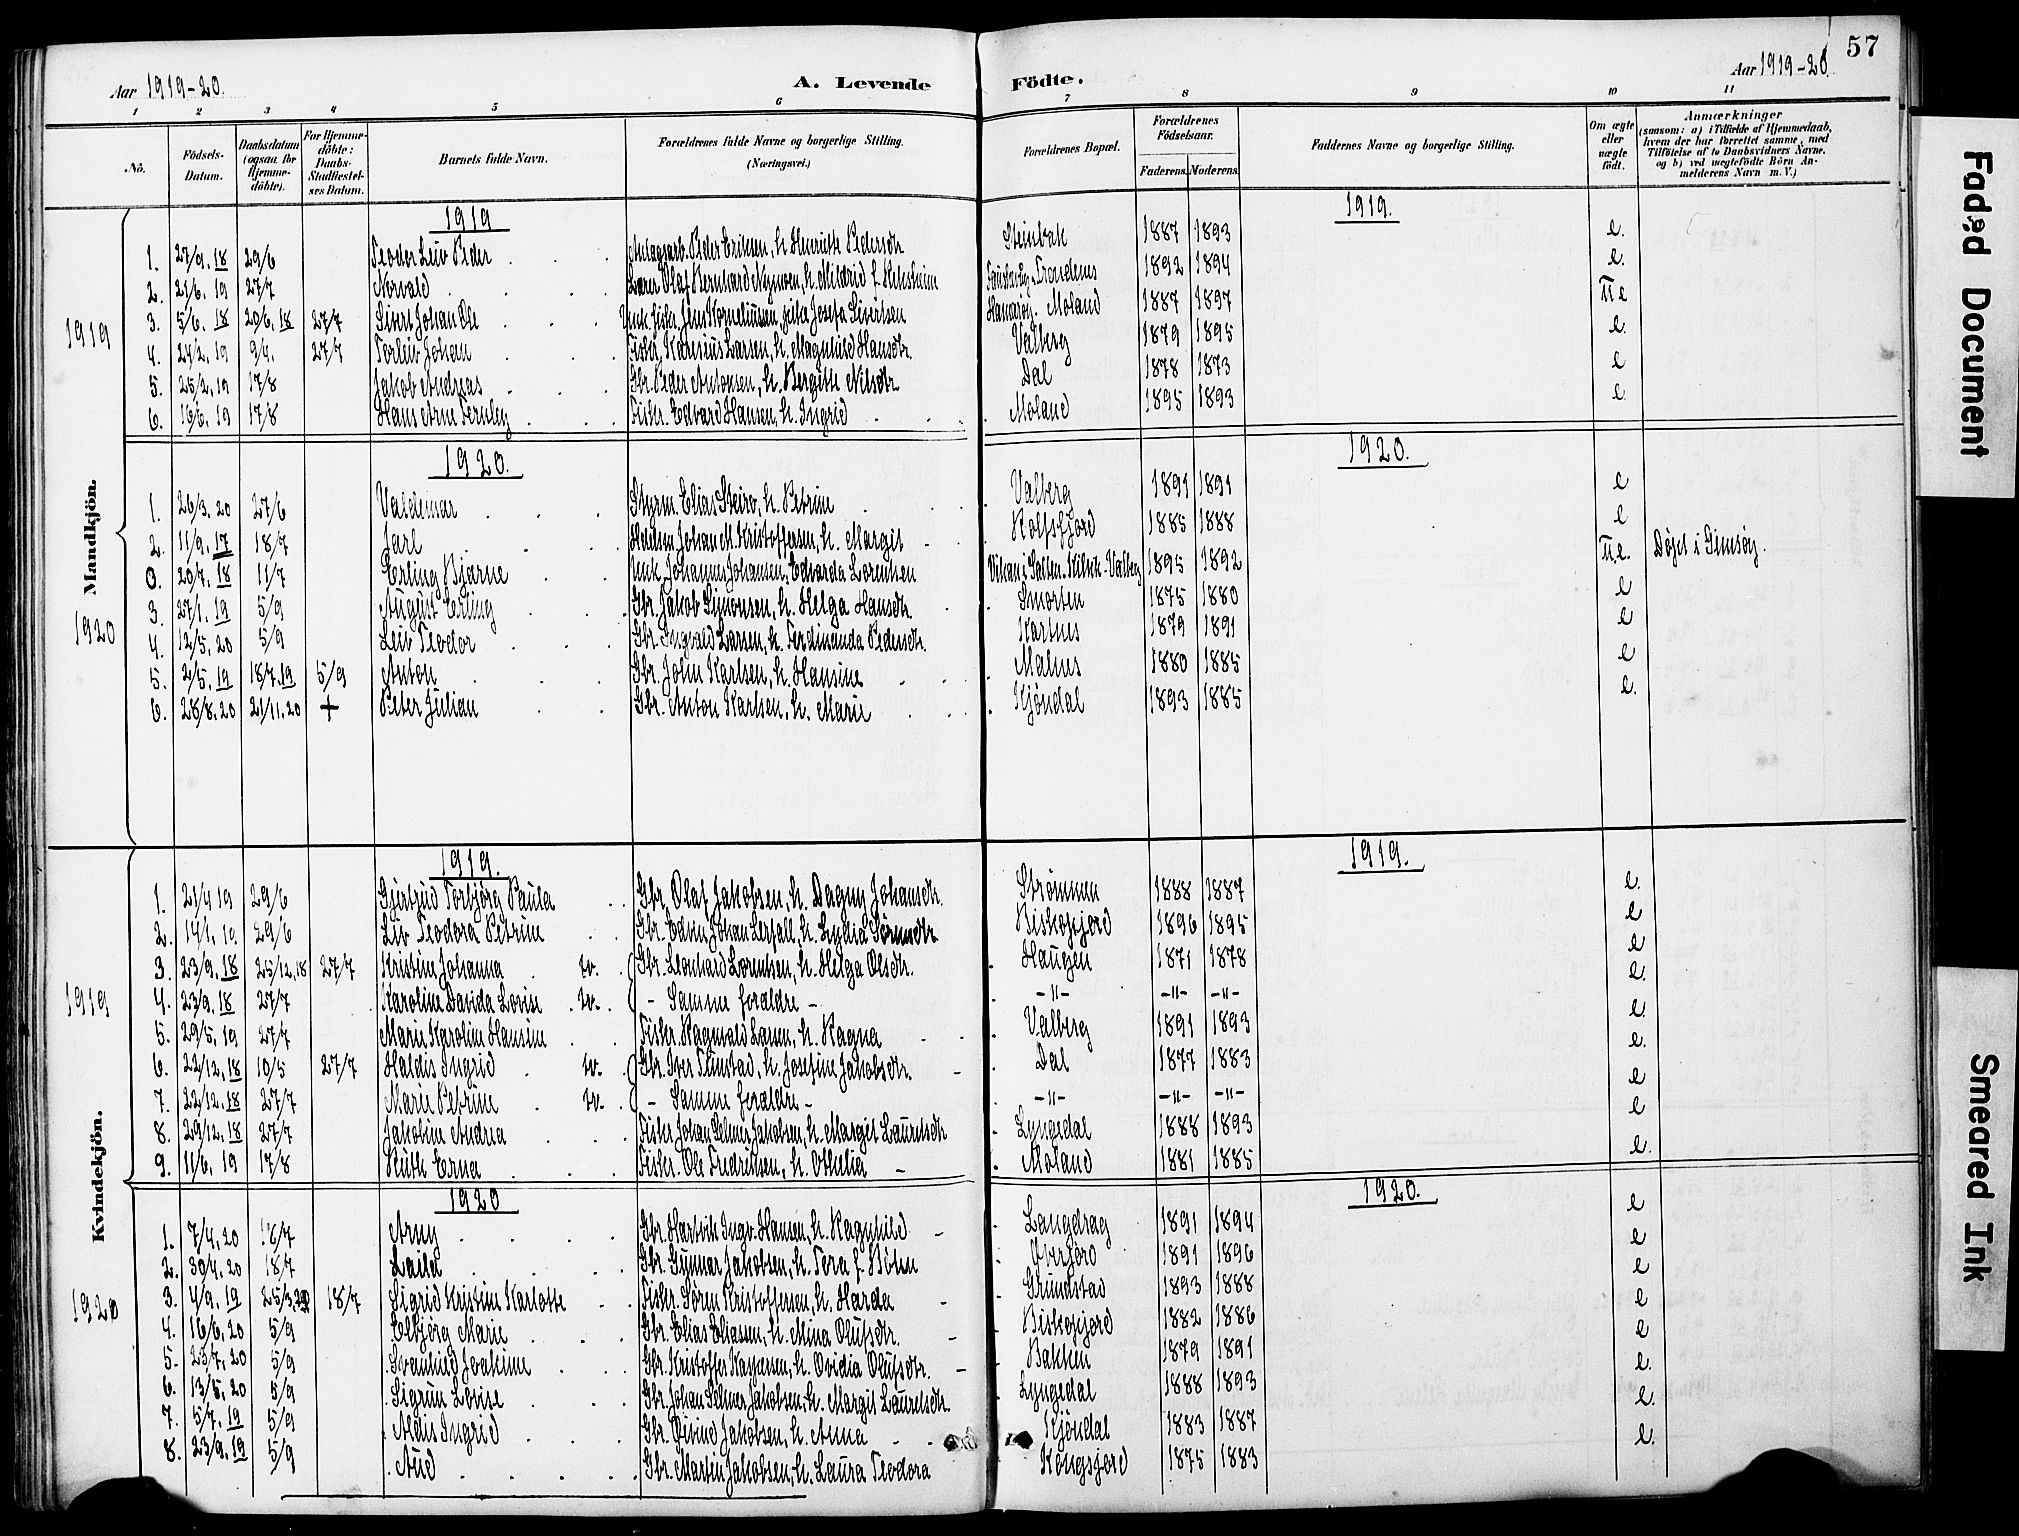 57
Aar 1919-20.
A. Levende
Födte.
Aar 1919-20
1 2 3 4 5 6 7 8 9 10 11
No.
Födsels-Datum.
Daabsdatum (ogsaa for Hjemme-döbte).
For Hjemme-döbte: Daabs-Stadfæstel-ses Datum.
Barnets fulde Navn.
Forældrenes fulde Navne og borgerlige Stilling. (Næringsvei.)
Forældrenes Bopæl.
Forældrenes Födselsaar.
Faderens. Moderens.
Faddernes Navne og borgerlige Stilling.
Om ægte eller uægte födt.
Anmærkninger
(saasom: a) i Tilfælde af Hjemmedaab, hvem der har forrettet samme, med Tilföielse af to Daabsvidners Navne, og b) ved uægtefödte Börn An-melderens Navn m. V.)
Mandkjön.
1919
1919 1919.
1. 27/9.18 29/6 Teodor Leiv Peder Peder Eriksen, h. Henriette Pedersdtr. Steinbak 1887 1893 e.
2. 21/6.19 27/7 Norvald Lærer Olaf Bernhard Nymoen, h. Mildrid f. Trondenes 1892 1894 e.
3. 5/6.18 20/6.18 27/7 Sivert Johan Ole Unk. fisker Jens Korneliussen, pike Josefa Sivertsen Hamarøy. Moland 1887 1897 u e
4. 24/2.19 9/4. 27/7 Torleiv Johan Fisker Karelius Larsen, h. Magnhild Hansdtr. Valberg 1879 1895 e.
5. 25/2.19 17/8 Jakob Andreas Gbr. Peder Antonsen, h. Bergitte Nilsdtr Dal 1878 1873 e
6. 16/6.19 17/8 Hans Arne Fernley Fisker. Edvard Hansen, h. Ingrid Moland 1895 1893 e.
1920
1920. 1920.
1. 26/3.20 27/6 Valdemar Styrm. Elias Steiro, h. Petrine Valberg 1891 1891 e
2. 11/9.17 18/7 Jarl Johan M. Kristoffersen, h. Margit Rolfsfjord 1885 1888 e
0. 20/7.18 11/7 Erling Bjarne Unk. Johannes Johansen, Edvarda Lorentsen Valberg 1895 1892 u.e. Døpt i Gimsøy.
3. 27/1.19 5/9 August Erling Gbr. Jakob Simonsen, h. Helga Hansdtr Smorten 1875 1880 e
4. 12/5.20 5/9 Leiv Teodor Gbr. Ingvald Larsen, h. Ferdinanda Pedersdtr. Kartnes 1879 1891 e
5. 2/5.19 18/7.19 5/9 Anton Gbr. John Karlsen, h. Hansine Malnes 1880 1885 e
6. 28/8.20 21/11.20 + Peter Julian Gbr. Anton Karlsen, h. Marie Kjøndal 1893 1885 e.
Kvindekjön.
1919
1919. 1919.
1. 21/4 19 29/6 Gjertrud Torbjørg Paula Gbr. Olaf Jakobsen, h. Dagny Johansdtr. Strømmen 1888 1887 e.
2. 14/1.19 29/6 Liv Teodora Petrine Gbr. Edvin Johan Lerfall, h. Lydia Sørensdtr. Biskopjord 1896 1895 e
3. 23/9.18 25/12.18 27/7 Kristine Johanna tv. Gbr. Leonhard Lorentsen, h. Helga Olsdtr. Haugen 1871 1878 e
4. 23/9.18 27/7 Karoline Davida Lovise tv. - Samme foraldre - -"- -"- -"- e.
5. 29/5.19 27/7 Marie Karoline Hansine Fisker Ragnvald Larsen, h. Ragna Valberg 1891 1893 e
6. 22/12.18 10/5 27/7 Haldis Ingrid tv. Gbr. Iver Finstad, h. Josefine Jakobsdtr. Dal 1877 1883 e.
7. 22/12.18 27/7 Marie Petrine tv. - Samme foraldre - -"- -"- -"- e
8. 29/12.18 27/7 Jakobine Andrea Fisker Johan Selmer Jakobsen, h. Margit Lauretsdtr Lyngedal 1888 1893 e
9. 11/6.19 17/8 Ruth Erna Fisker. Ole Fredriksen, h. Othilia Moland 1881 1885 e.
1920
1920 1920.
1. 7/4.20 18/7 Arny Gbr. Hartvik Ingv. Hansen, h. Ragnhild Langdrag 1891 1894 e
2. 30/4.20 18/7 Laila Gbr. Gunnar Jakobsen, h. Tora f. Böhn 1891 1896 e
3. 4/9.19 25/3.20 18/7 Sigrid Kristine Karlotte Fisker Søren Kristoffersen, h. Harda Grundstad 1893 1888 e
4. 16/6.20 5/9 Elbjørg Marie Gbr. Elias Eliassen, h. Mina Olufsdtr. Biskopjord 1882 1886 e
5. 23/7.20 5/9 Svanhild Joakime Gbr. Kristoffer Kaspersen, h. Ovidia Olufsdtr. Bakken 1879 1891 e
6. 13/5.20 5/9 Sigrun Lovise Gbr. Johan Selmer Jakobsen, h. Margit Lauretsdtr. Lyngedal 1888 1893 e.
7. 5/7.19 5/9 Aldis Ingrid Gbr. Øivind Jakobsen, h. Anna Kjøndal 1883 1887 e.
8. 23/9.19 5/9 Aud Gbr. Martin Jakobsen, h. Laura Teodora Kongsjord 1875 1883 e.
Faded Document
Smeared Ink